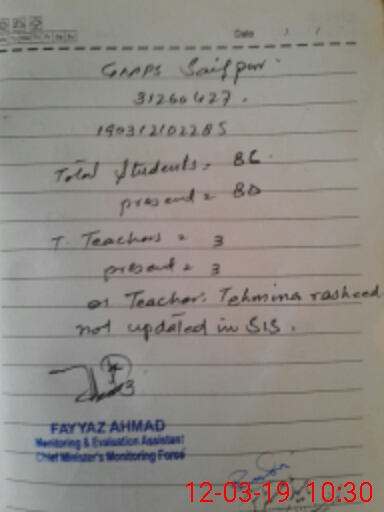 Date / /
GMPS Saifpur.
31260427.
190312102285
Total Students = 86.
present = 80
T. Teachers = 3
present = 3
01 Teacher. Tehmina rasheed
not updated in SIS.
FAYYAZ AHMAD
Monitoring & Evaluation Assistant
Chief Minister's Monitoring Force
12-03-19 10:30